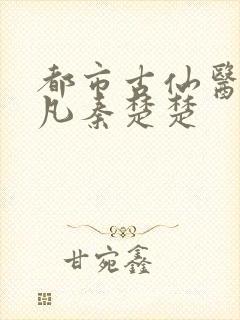 都市古仙醫
凡秦楚楚
甘宛鑫